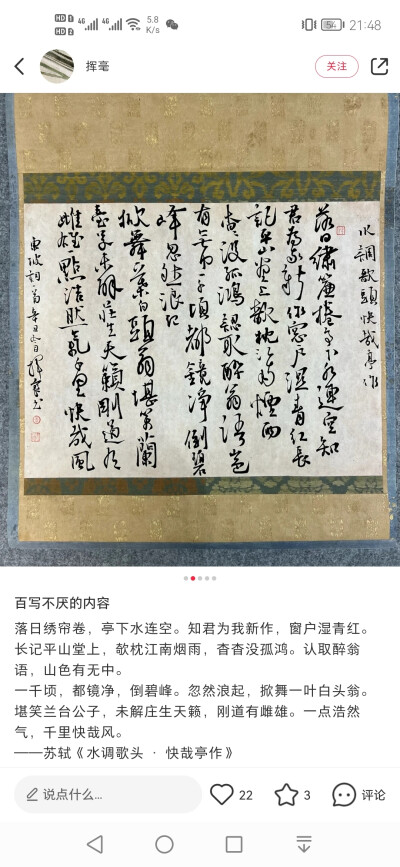 HD 1 4G 4G 5.8 K/s
HD 2 54 21:48
挥毫
关注
水調歌頭 快哉亭作
落日繡簾捲亭下水連空知
君為我新作窗戶濕青紅長
記平山堂上欹枕江南煙雨
杳杳沒孤鴻認取醉翁語山色
有無中一千頃都鏡淨倒碧
峰忽然浪起
掀舞一葉白頭翁堪笑蘭
臺公子未解莊生天籟剛道有
雌雄一點浩然氣千里快哉風
百写不厌的内容
落日绣帘卷，亭下水连空。知君为我新作，窗户湿青红。
长记平山堂上，欹枕江南烟雨，杳杳没孤鸿。认取醉翁
语，山色有无中。
一千顷，都镜净，倒碧峰。忽然浪起，掀舞一叶白头翁。
堪笑兰台公子，未解庄生天籁，刚道有雌雄。一点浩然
气，千里快哉风。
——苏轼《水调歌头 · 快哉亭作》
说点什么...
22
3
评论